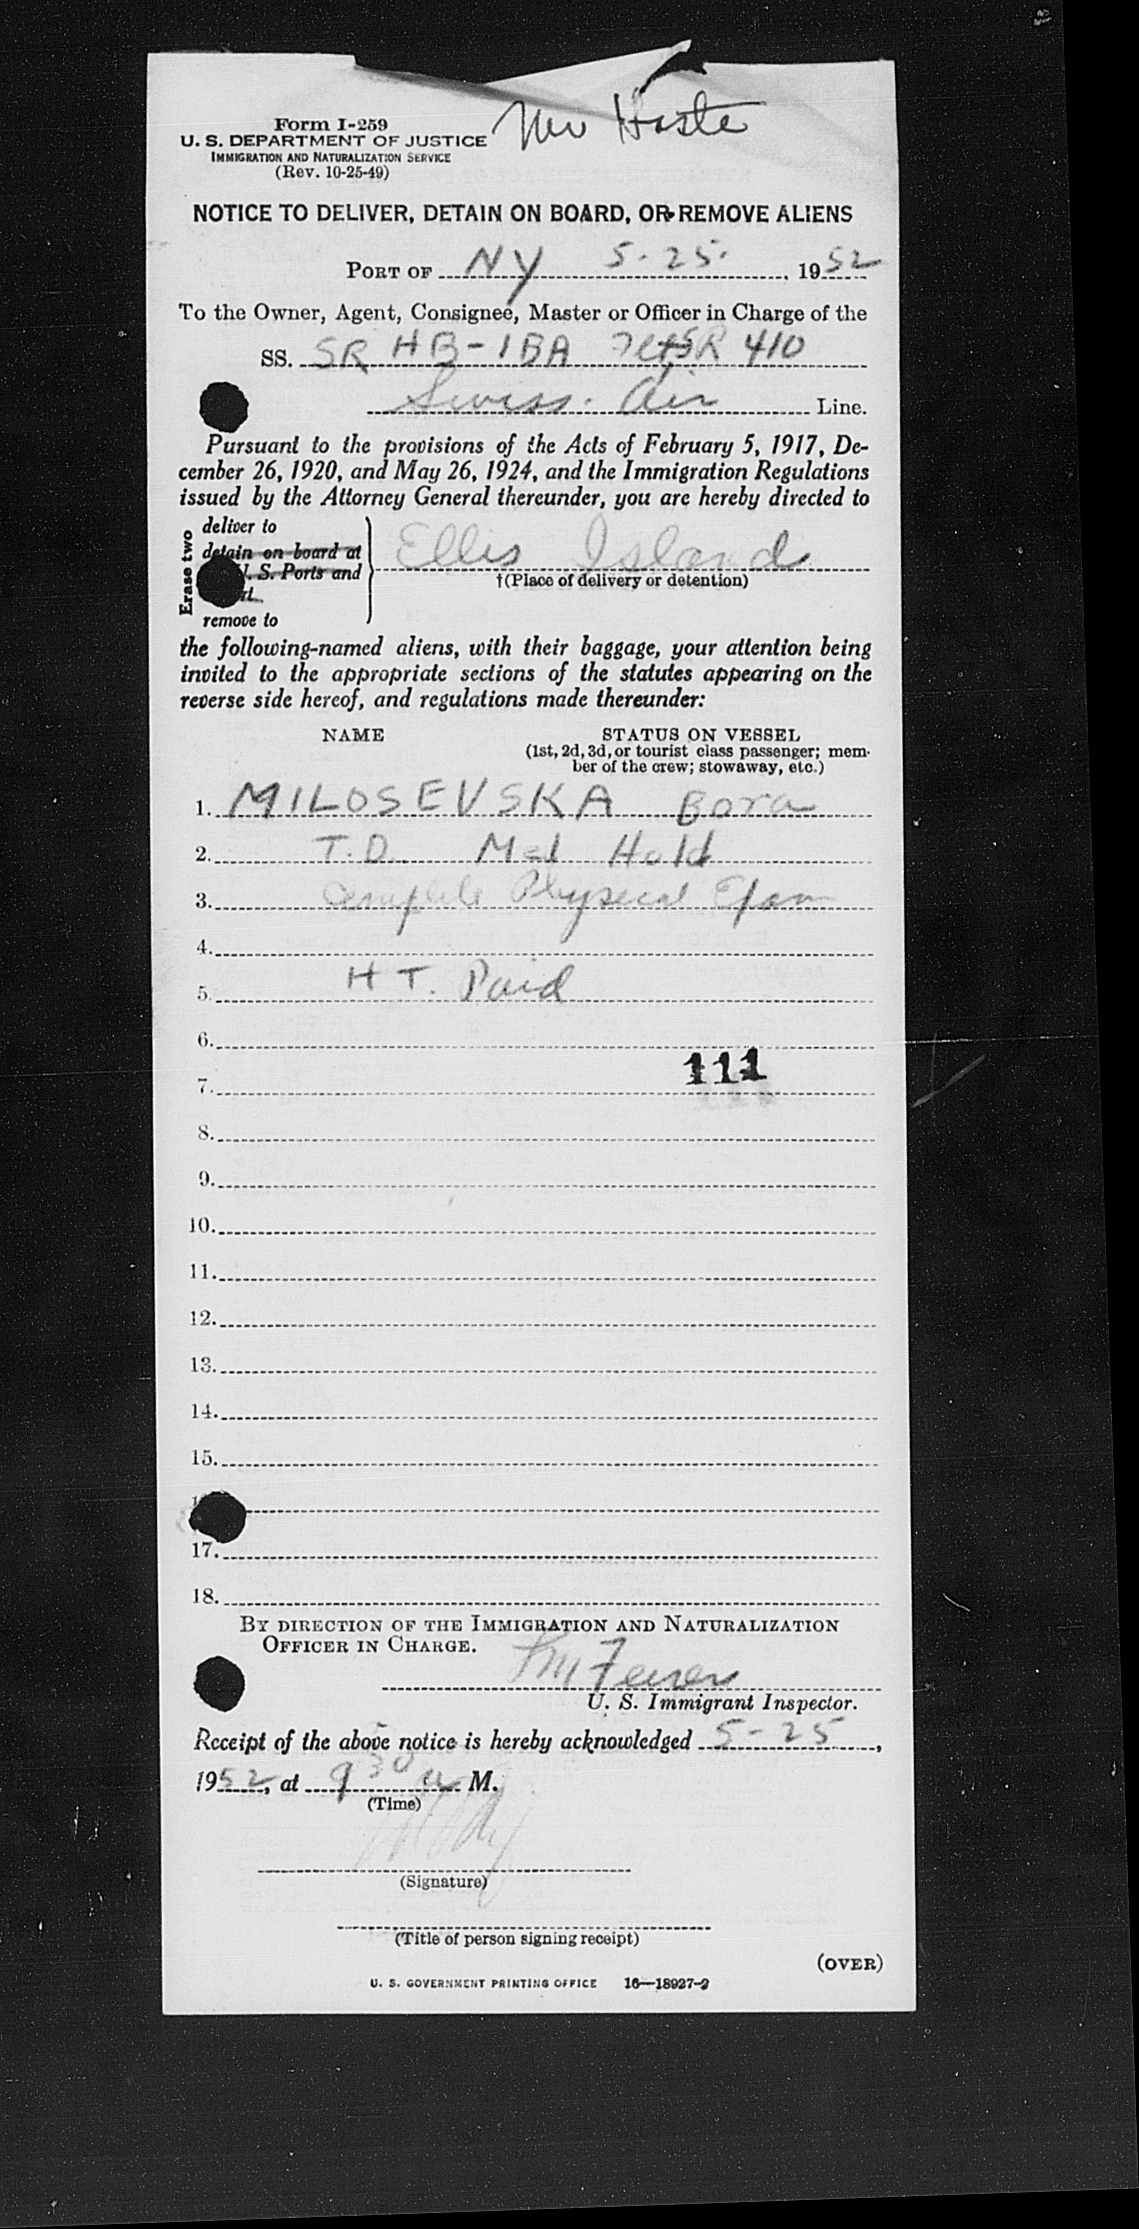 Form I-259
U. S. DEPARTMENT OF JUSTICE
IMMIGRATION AND NATURALIZATION SERVICE
(Rev. 10-25-49)
NOTICE TO DELIVER, DETAIN ON BOARD, OR REMOVE ALIENS
PORT OF NY 5-25- , 1952
To the Owner, Agent, Consignee, Master or Officer in Charge of the
SS. SR HB-IBA SR 410
Swiss. Air Line.
Pursuant to the provisions of the Acts of February 5, 1917, De-
cember 26, 1920, and May 26, 1924, and the Immigration Regulations
issued by the Attorney General thereunder, you are hereby directed to
Erase two
deliver to
detain on board at
U. S. Ports and
remove to
Ellis Island
†(Place of delivery or detention)
the following-named aliens, with their baggage, your attention being
invited to the appropriate sections of the statutes appearing on the
reverse side hereof, and regulations made thereunder:
NAME STATUS ON VESSEL
(1st, 2d, 3d, or tourist class passenger; mem-
ber of the crew; stowaway, etc.)
1. MILOSEVSKA Bora
2. T.D. Med Hold
3. Complete Physical Exam
4.
5. HT. Paid
6.
111
7.
8.
9.
10.
11.
12.
13.
14.
15.
17.
18.
BY DIRECTION OF THE IMMIGRATION AND NATURALIZATION
OFFICER IN CHARGE.
U. S. Immigrant Inspector.
Receipt of the above notice is hereby acknowledged 5-25,
1952, at 9 30 a M.
(Time)
(Signature)
(Title of person signing receipt)
(OVER)
U. S. GOVERNMENT PRINTING OFFICE 16—18927-2